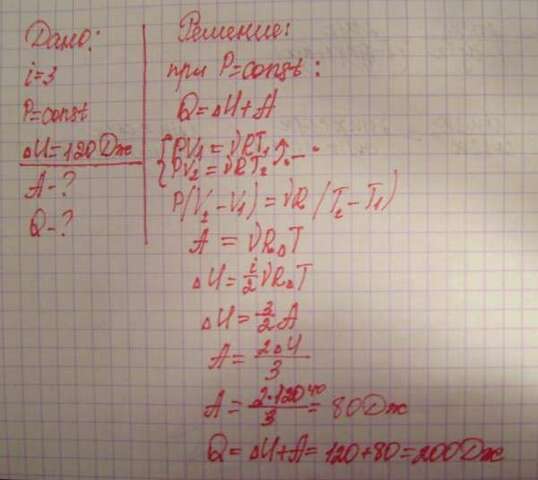 Дано:
i=3
P=const
ΔU=120 Дж
A-?
Q-?
Решение:
при P=const:
Q=ΔU+A
{PV₁=νRT₁
{PV₂=νRT₂
P(V₂-V₁)=νR(T₂-T₁)
A=νRΔT
ΔU=i/2 νRΔT
ΔU=3/2 A
A=2ΔU/3
A=2·120⁴⁰/3=80 Дж
Q=ΔU+A=120+80=200 Дж